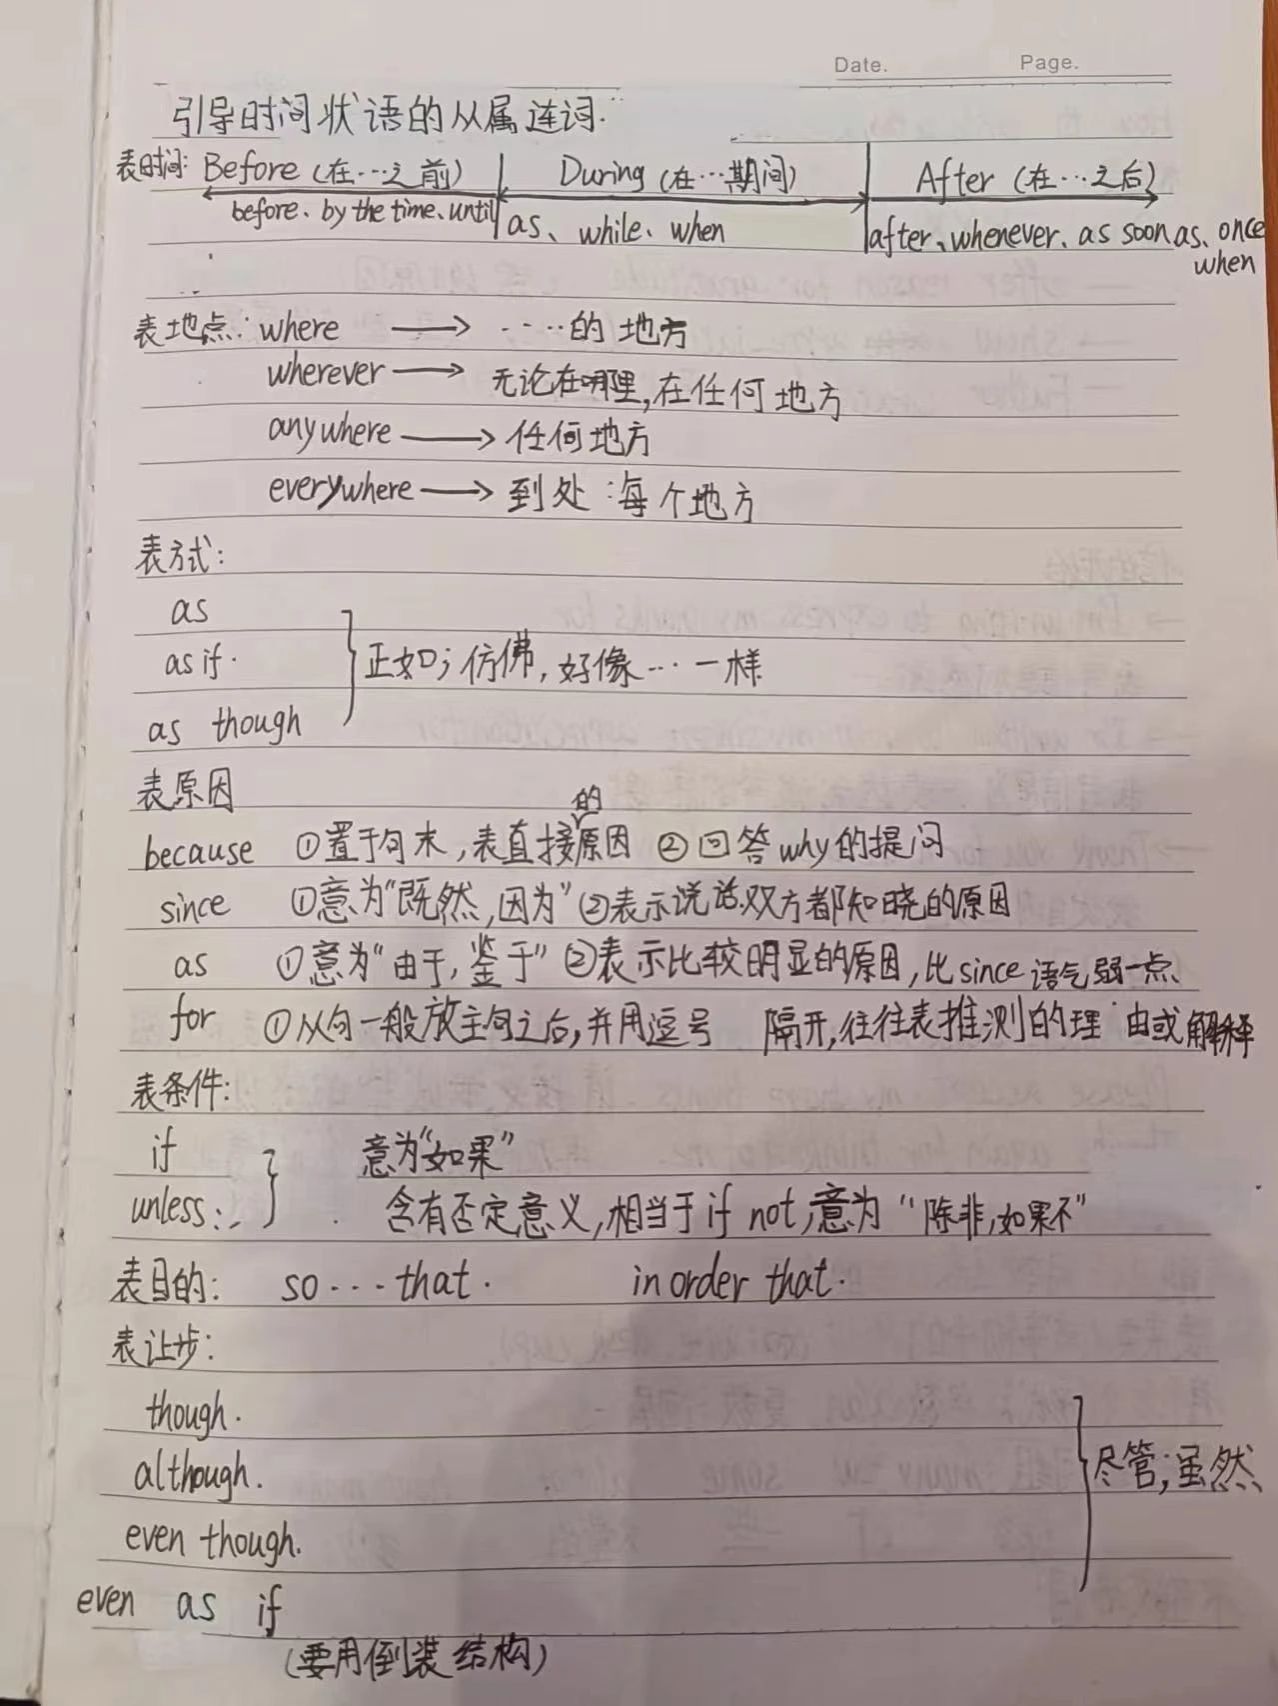 Date. Page.
引导时间状语的从属连词.
表时间: Before (在…之前) During (在…期间) After (在…之后)
before、by the time、until as、while、when after、whenever、as soon as、once
when
表地点: where → ……的地方
wherever → 无论在哪里,在任何地方
anywhere → 任何地方
everywhere → 到处:每个地方
表方式:
as
as if. 正如;仿佛,好像…一样
as though
表原因
because ①置于句末,表直接的原因 ②回答why的提问
since ①意为“既然,因为” ②表示说话双方都知晓的原因
as ①意为“由于,鉴于” ②表示比较明显的原因,比since语气弱一点、
for ①从句一般放主句之后,并用逗号 隔开,往往表推测的理由或解释
表条件:
if 意为“如果”
unless: 含有否定意义,相当于if not,意为“除非,如果不”
表目的: so…that. in order that.
表让步:
though.
although. 尽管;虽然、
even though.
even as if
(要用倒装结构)